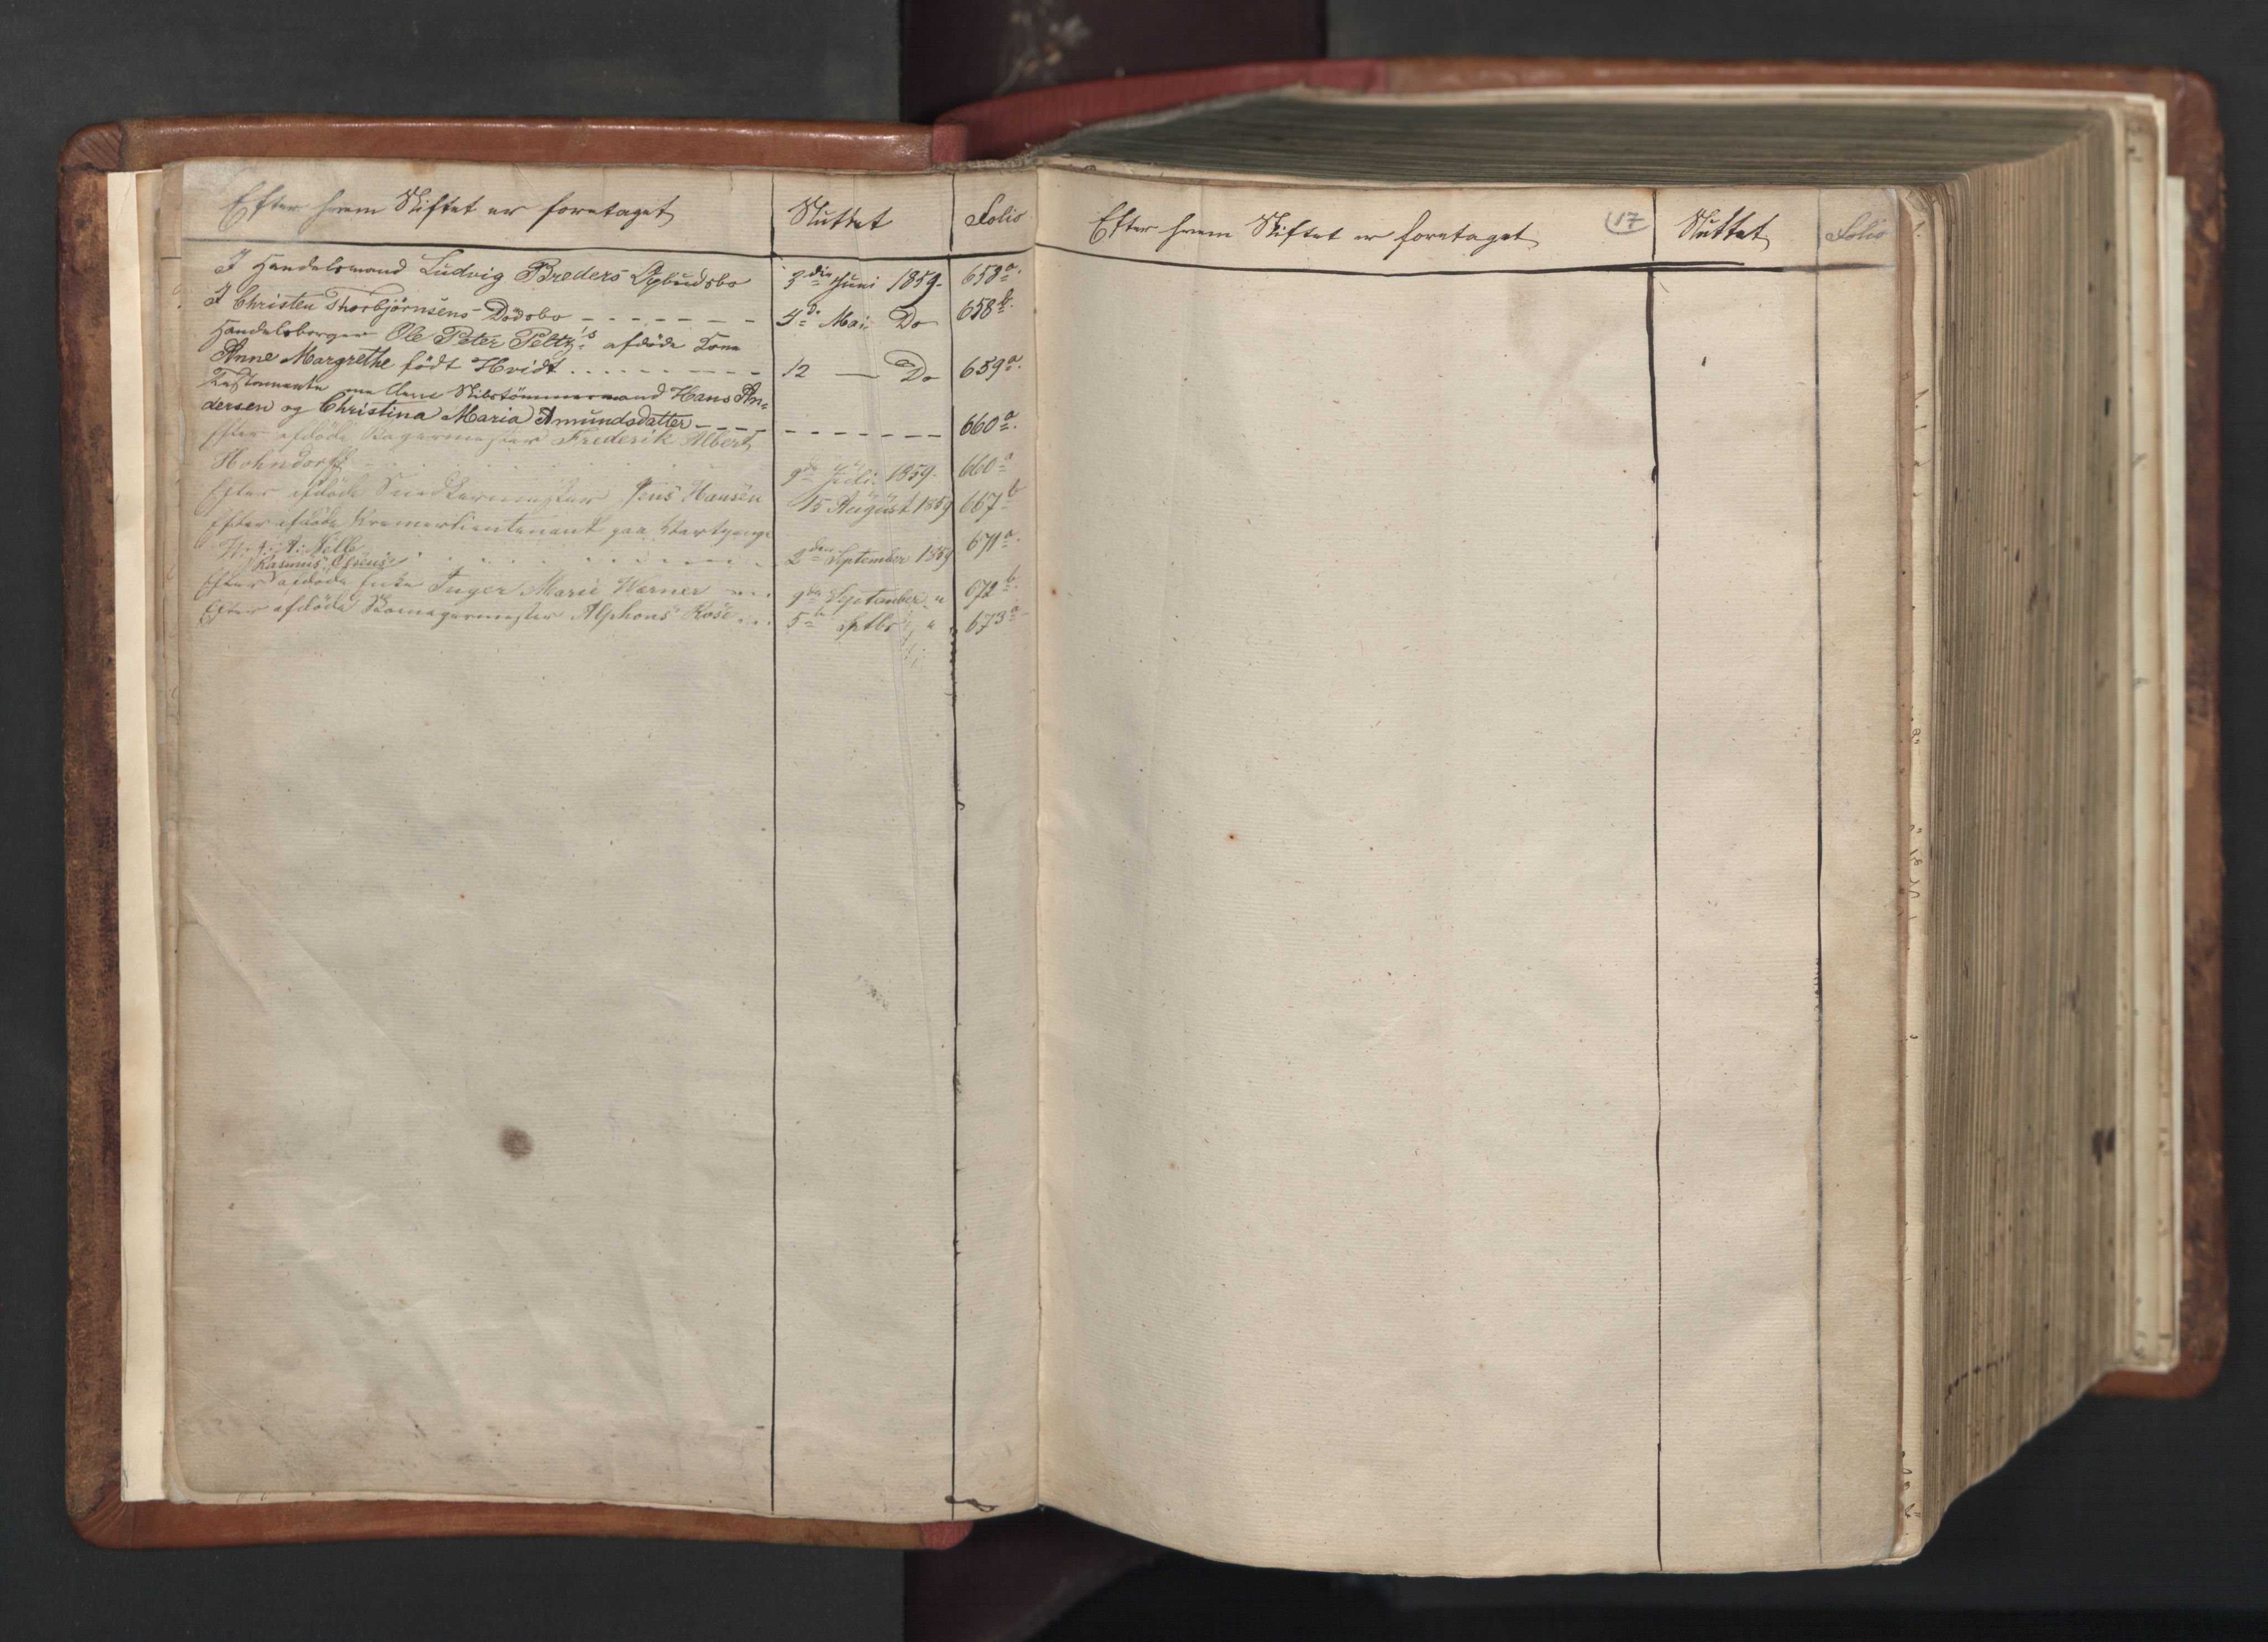 Efter hvem Skiftet er foretaget Sluttet Folio
I Handelsmand Ludvig Breders Opbudsbo 3die Juni 1859. 658a.
I Christen Thorbjørnsens Dødsbo - - - - - - - 5te Mai Do 658b.
Handelsborger Ole Peter Peltz's afdøde Kone
Anne Margrethe født Hvidt . . . . . - - - - 12 — Do 659a.
Testamente mellem Skibstømmermand Hans An=
dersen og Christina Maria Amundsdatter - - - - - - - - - - - 660a.
Efter afdøde Bagermester Frederik Albert
Hohndorff 9de Juli 1859. 660a
Efter afdøde Snedkermester Jens Hansen 15 August 1859 667b
Efter afdøde Premierlieutenant paa Vartpenge
Nelle 2den September 1859 671a.
Rasmus Olsens
Efter afdøde Enke Inger Marie Werner 9de September " 672b.
Efter afdøde Skomagermester Alphons Rose 5te Septbr " 673a
Efter hvem Skiftet er foretaget 17 Sluttet Folio